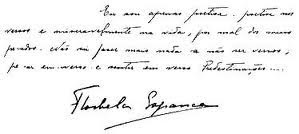 Eu sou apenas poetisa: poetisa nos
versos e miseravelmente na vida, por mal dos meus
pecados. Não sei fazer mais nada a não ser versos,
pensar em verso e sentir em verso. Predestinações...
Florbela Espanca